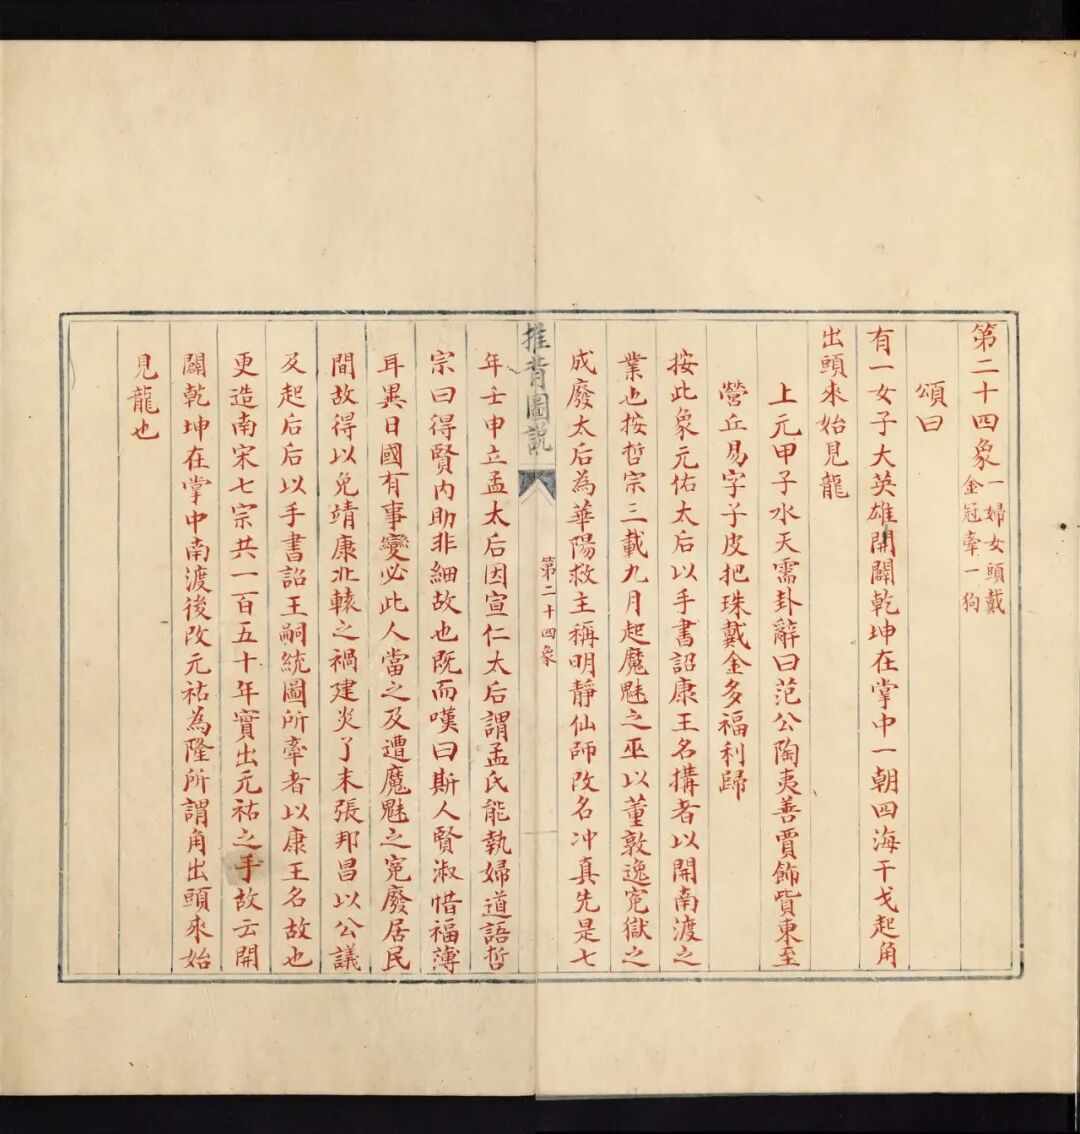 第二十四象一婦女頭戴
金冠牽一狗
頌曰
有一女子大英雄開闢乾坤在掌中一朝四海干戈起角
出頭來始見龍
上元甲子水天需卦辭曰范公陶夷善賈飾貲東至
營丘易字子皮把珠戴金多福利歸
按此象元佑太后以手書詔康王名搆者以開南渡之
業也按哲宗三載九月起魔魅之巫以董敦逸冤獄之
成廢太后為華陽救主稱明靜仙師改名冲真先是七
推背圖説
第二十四象
年壬申立孟太后因宣仁太后謂孟氏能執婦道語哲
宗曰得賢內助非細故也既而嘆曰斯人賢淑惜福薄
耳異日國有事變必此人當之及遭魔魅之冤廢居民
間故得以免靖康北轅之禍建炎了末張邦昌以公議
及起后后以手書詔王嗣統圖所牽者以康王名故也
更造南宋七宗共一百五十年實出元祐之手故云開
闢乾坤在掌中南渡後改元祐為隆所謂角出頭來始
見龍也